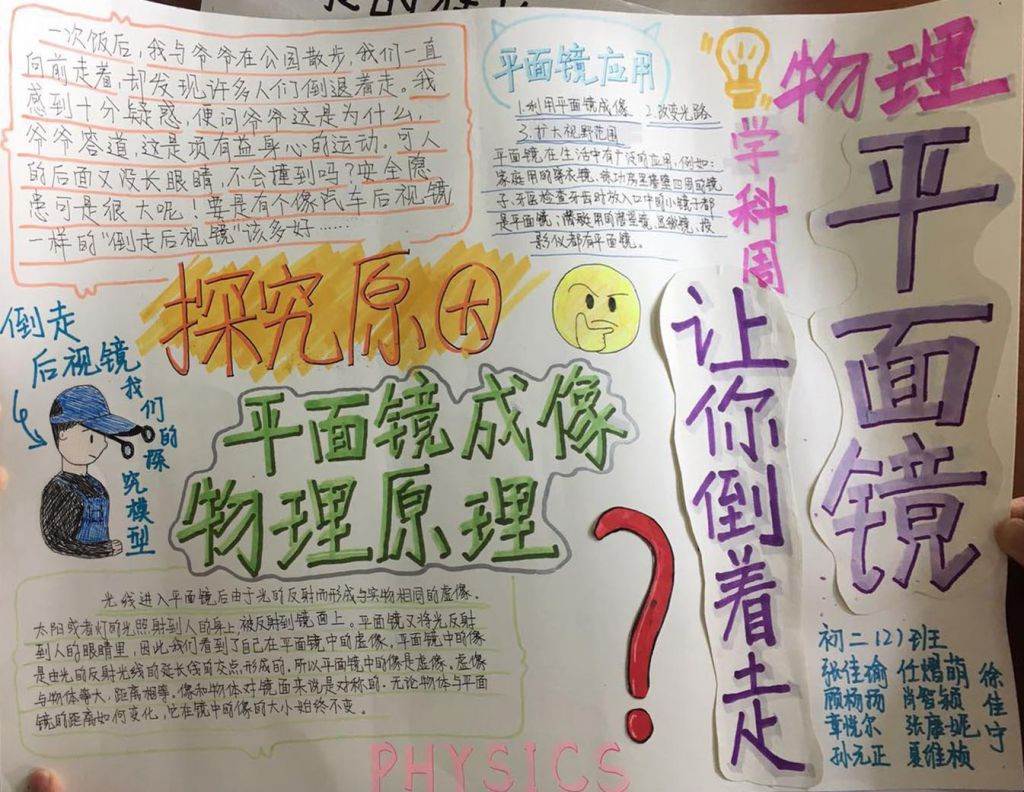 一次饭后，我与爷爷在公园散步，我们一直
向前走着，却发现许多人们倒退着走。我
感到十分疑惑，便问爷爷这是为什么，
爷爷答道，这是项有益身心的运动。可人
的后面又没长眼睛，不会撞到吗？安全隐
患可是很大呢！要是有个像汽车后视镜
一样的“倒走后视镜”该多好……
平面镜应用
1.利用平面镜成像 2.改变光路
3.扩大视野范围
平面镜在生活中有广泛的应用，例如：
家庭用的穿衣镜、练功房里墙壁四周的镜
子、牙医检查牙齿时放入口中的小镜子都
是平面镜；潜艇用的潜望镜、显微镜、投
影仪都有平面镜。
物理
学科周
平面镜
让你倒着走
探究原因
倒走
后视镜
我们的探究模型
平面镜成像
物理原理
光线进入平面镜后由于光的反射而形成与实物相同的虚像。
太阳或者灯的光照射到人的身上，被反射到镜面上。平面镜又将光反射
到人的眼睛里，因此我们看到了自己在平面镜中的虚像。平面镜中的像
是由光的反射光线的延长线的交点形成的，所以平面镜中的像是虚像。虚像
与物体等大，距离相等。像和物体对镜面来说是对称的。无论物体与平面
镜的距离如何变化，它在镜中的像的大小始终不变。
?
PHYSICS
初二(2)班
张佳瑜 任熠萌 徐佳宁
顾杨扬 肖智颖
章悦尔 张康妮
孙元正 夏维桢